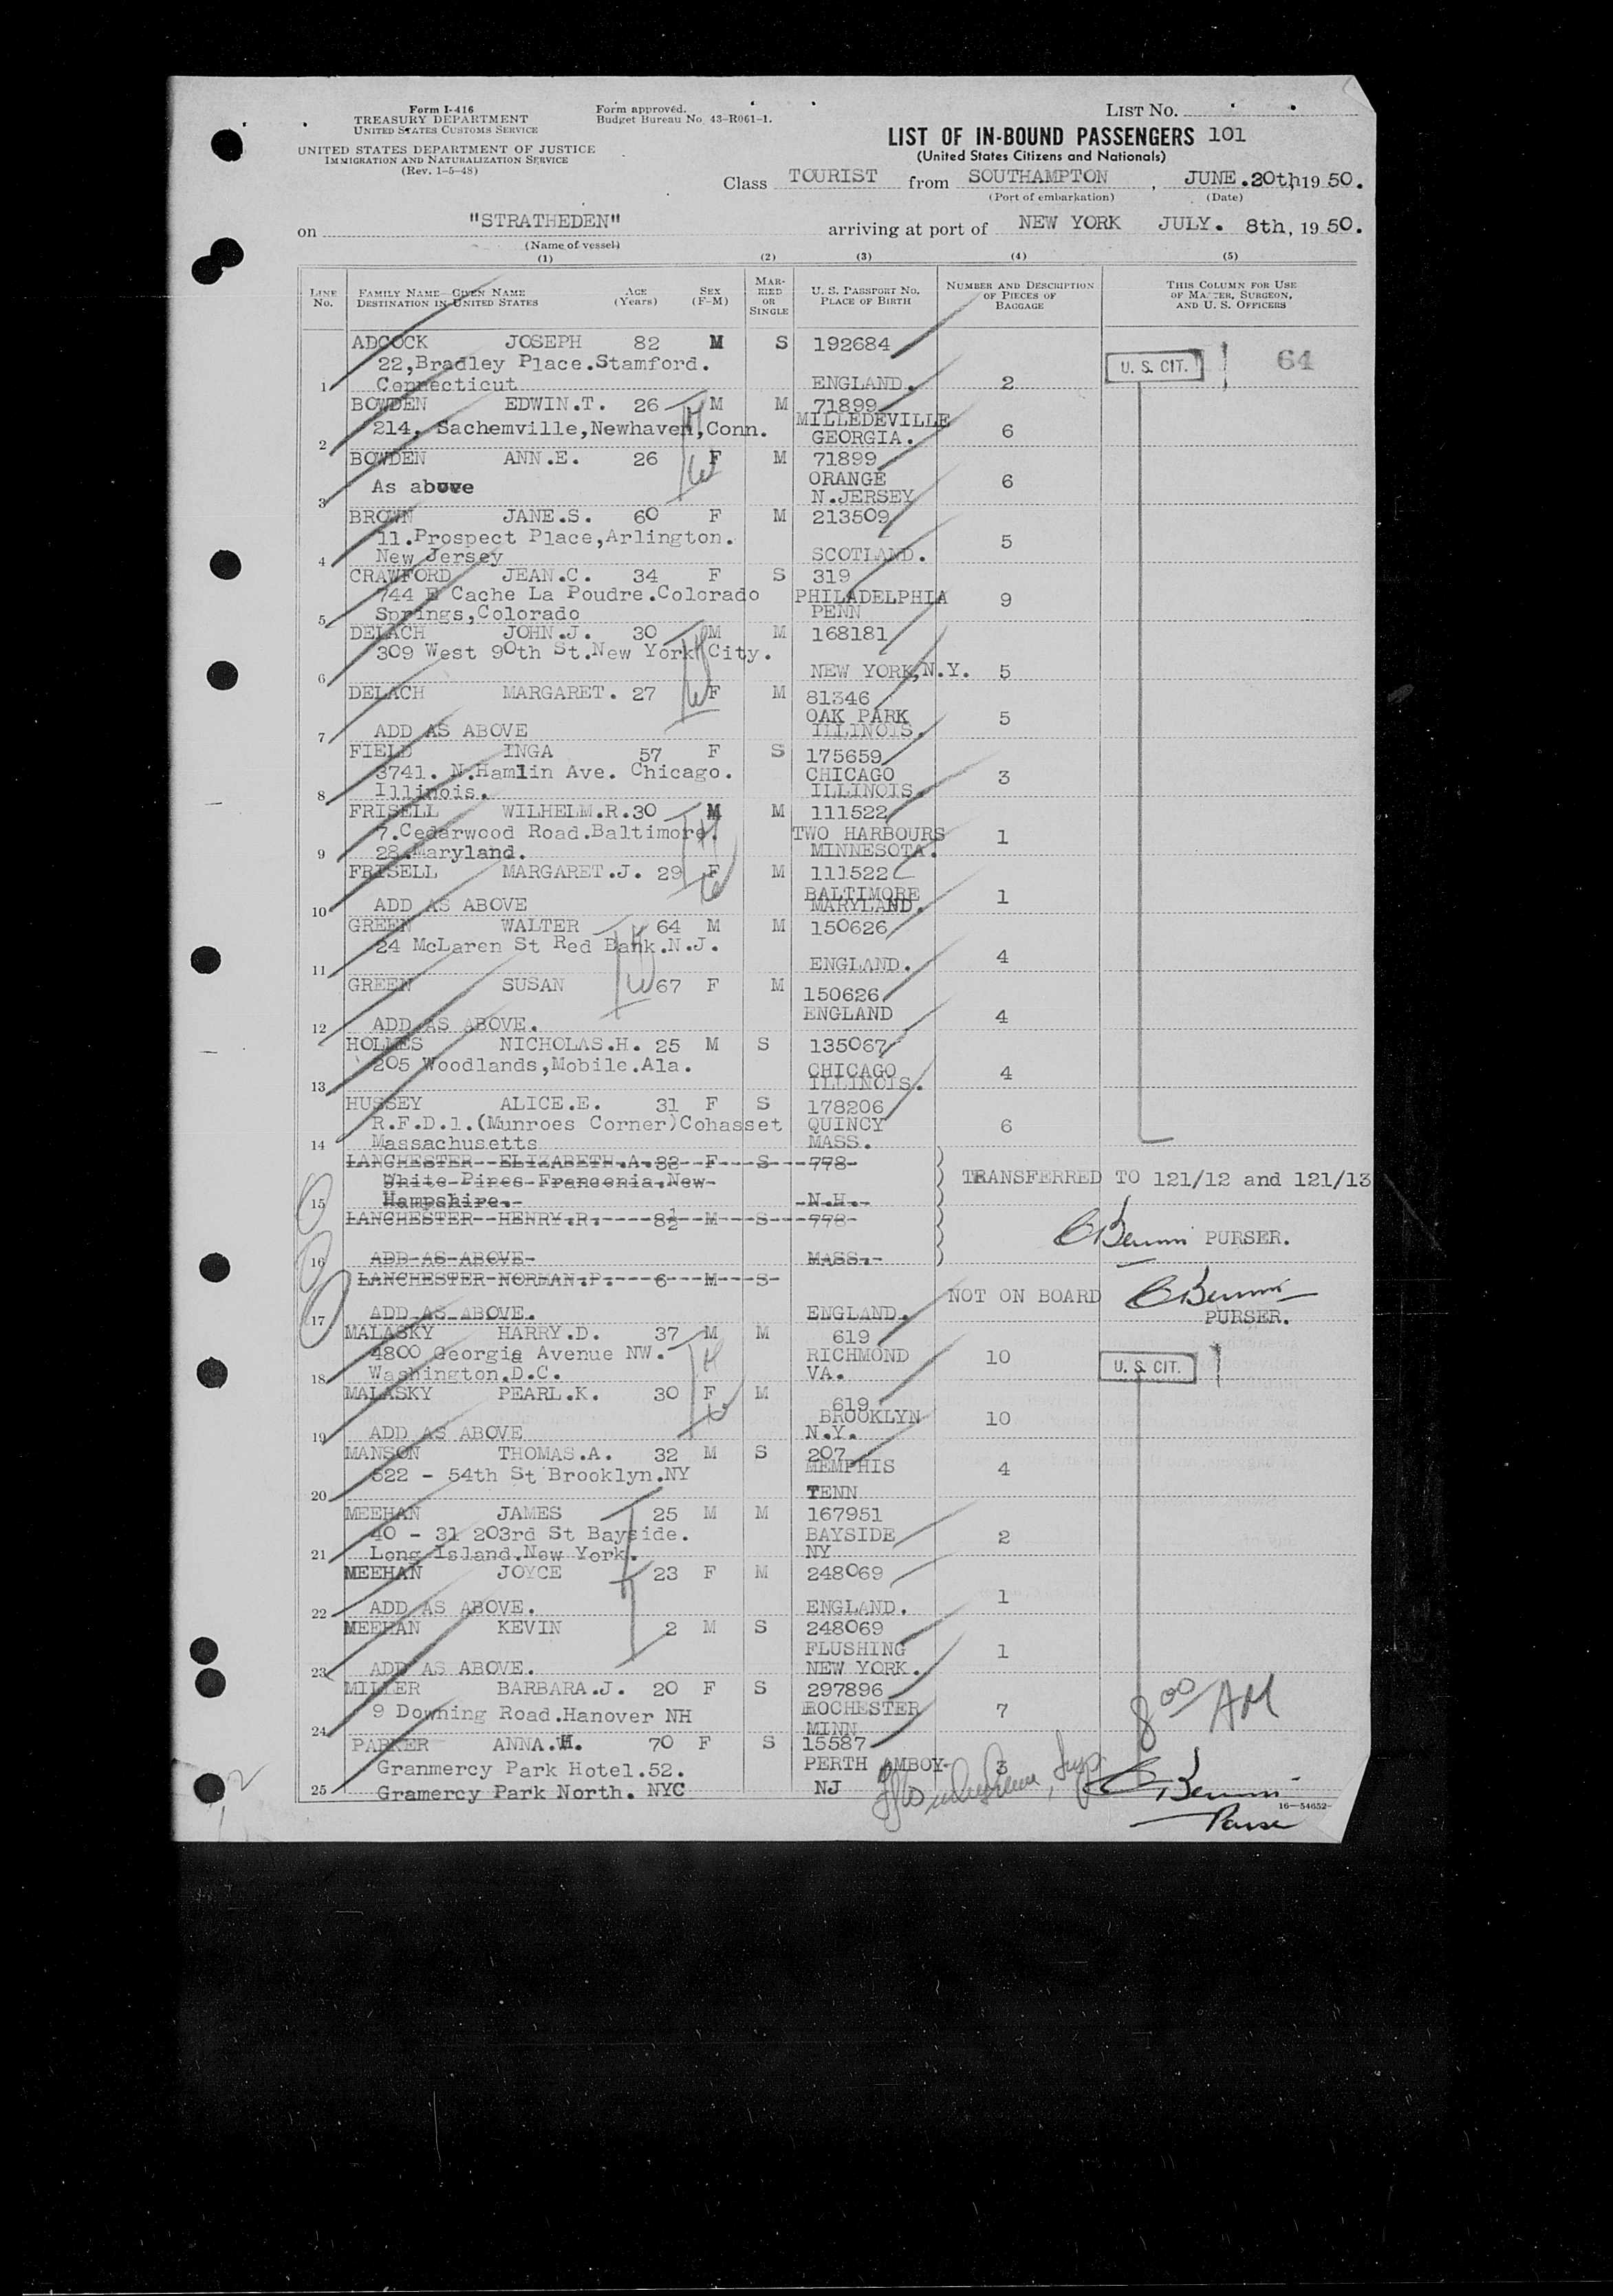 Form I-416
TREASURY DEPARTMENT
UNITED STATES CUSTOMS SERVICE
UNITED STATES DEPARTMENT OF JUSTICE
IMMIGRATION AND NATURALIZATION SERVICE
(Rev. 1-5-48)
Form approved.
Budget Bureau No. 43-R061-1.
LIST NO.
LIST OF IN-BOUND PASSENGERS 101
(United States Citizens and Nationals)
Class TOURIST from SOUTHAMPTON, JUNE.20th,1950.
(Port of embarkation) (Date)
on "STRATHEDEN" arriving at port of NEW YORK JULY. 8th, 1950.
(Name of vessel)
(1) (2) (3) (4) (5)
LINE No. FAMILY NAME—GIVEN NAME DESTINATION IN UNITED STATES AGE (Years) SEX (F-M) MARRIED OR SINGLE U. S. PASSPORT NO. PLACE OF BIRTH NUMBER AND DESCRIPTION OF PIECES OF BAGGAGE THIS COLUMN FOR USE OF MASTER, SURGEON, AND U. S. OFFICERS
ADCOCK JOSEPH 82 M S 192684
22,Bradley Place.Stamford. U. S. CIT. 64
1 Connecticut ENGLAND. 2
BOWDEN EDWIN.T. 26 M M 71899
214, Sachemville,Newhaven,Conn. MILLEDEVILLE
2 GEORGIA. 6
BOWDEN ANN.E. 26 F M 71899
As above ORANGE 6
3 N.JERSEY
BROWN JANE.S. 60 F M 213509
11.Prospect Place,Arlington. 5
4 New Jersey SCOTLAND.
CRAWFORD JEAN.C. 34 F S 319
744 E Cache La Poudre.Colorado PHILADELPHIA 9
5 Springs,Colorado PENN
DELACH JOHN.J. 30 M M 168181
309 West 90th St.New York City.
6 NEW YORK,N.Y. 5
DELACH MARGARET. 27 F M 81346
OAK PARK 5
7 ADD AS ABOVE ILLINOIS.
FIELD INGA 57 F S 175659
3741. N.Hamlin Ave. Chicago. CHICAGO 3
8 Illinois. ILLINOIS.
FRISELL WILHELM.R.30 M M 111522
7.Cedarwood Road.Baltimore. TWO HARBOURS 1
9 28.Maryland. MINNESOTA.
FRISELL MARGARET.J. 29 F M 111522
BALTIMORE 1
10 ADD AS ABOVE MARYLAND.
GREEN WALTER 64 M M 150626
24 McLaren St Red Bank.N.J. 4
11 ENGLAND.
GREEN SUSAN 67 F M 150626
ENGLAND 4
12 ADD AS ABOVE.
HOLMES NICHOLAS.H. 25 M S 135067
205 Woodlands,Mobile.Ala. CHICAGO 4
13 ILLINOIS.
HUSSEY ALICE.E. 31 F S 178206
R.F.D.1.(Munroes Corner)Cohasset QUINCY 6
14 Massachusetts MASS.
LANCHESTER ELIZABETH.A.32 F S 778
White Pines Franconia.New TRANSFERRED TO 121/12 and 121/13
15 Hampshire. N.H.
LANCHESTER HENRY.R. 8½ M S 778
PURSER.
16 ADD AS ABOVE MASS.
LANCHESTER NORMAN.P. 6 M S
NOT ON BOARD
17 ADD AS ABOVE. ENGLAND. PURSER.
MALASKY HARRY.D. 37 M M 619
4800 Georgia Avenue NW. RICHMOND 10 U. S. CIT.
18 Washington.D.C. VA.
MALASKY PEARL.K. 30 F M 619
BROOKLYN 10
19 ADD AS ABOVE N.Y.
MANSON THOMAS.A. 32 M S 207
522 - 54th St Brooklyn.NY MEMPHIS 4
20 TENN
MEEHAN JAMES 25 M M 167951
40 - 31 203rd St Bayside. BAYSIDE 2
21 Long Island.New York. NY
MEEHAN JOYCE 23 F M 248069
22 ADD AS ABOVE. ENGLAND. 1
MEEHAN KEVIN 2 M S 248069
FLUSHING 1
23 ADD AS ABOVE. NEW YORK.
MILLER BARBARA.J. 20 F S 297896
9 Downing Road.Hanover NH ROCHESTER 7 8 00 AM
24 MINN
PARKER ANNA.H. 70 F S 15587
Granmercy Park Hotel.52. PERTH AMBOY- 3
25 Gramercy Park North. NYC NJ
16—54652-